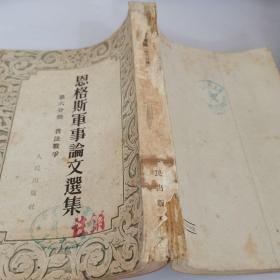 恩格斯軍事論文選集
第六分冊 普法戰爭
人民出版社
民出版